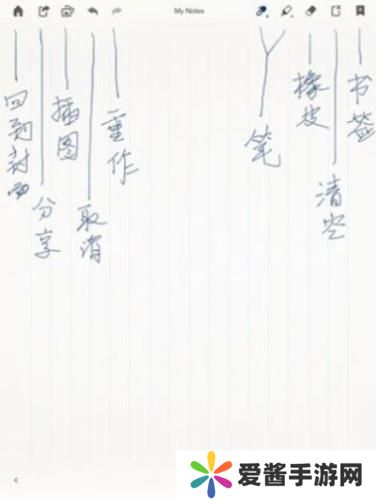 My Notes
回到封面
分享
插图
取消
重作
笔
橡皮
清空
书签
爱酱手游网